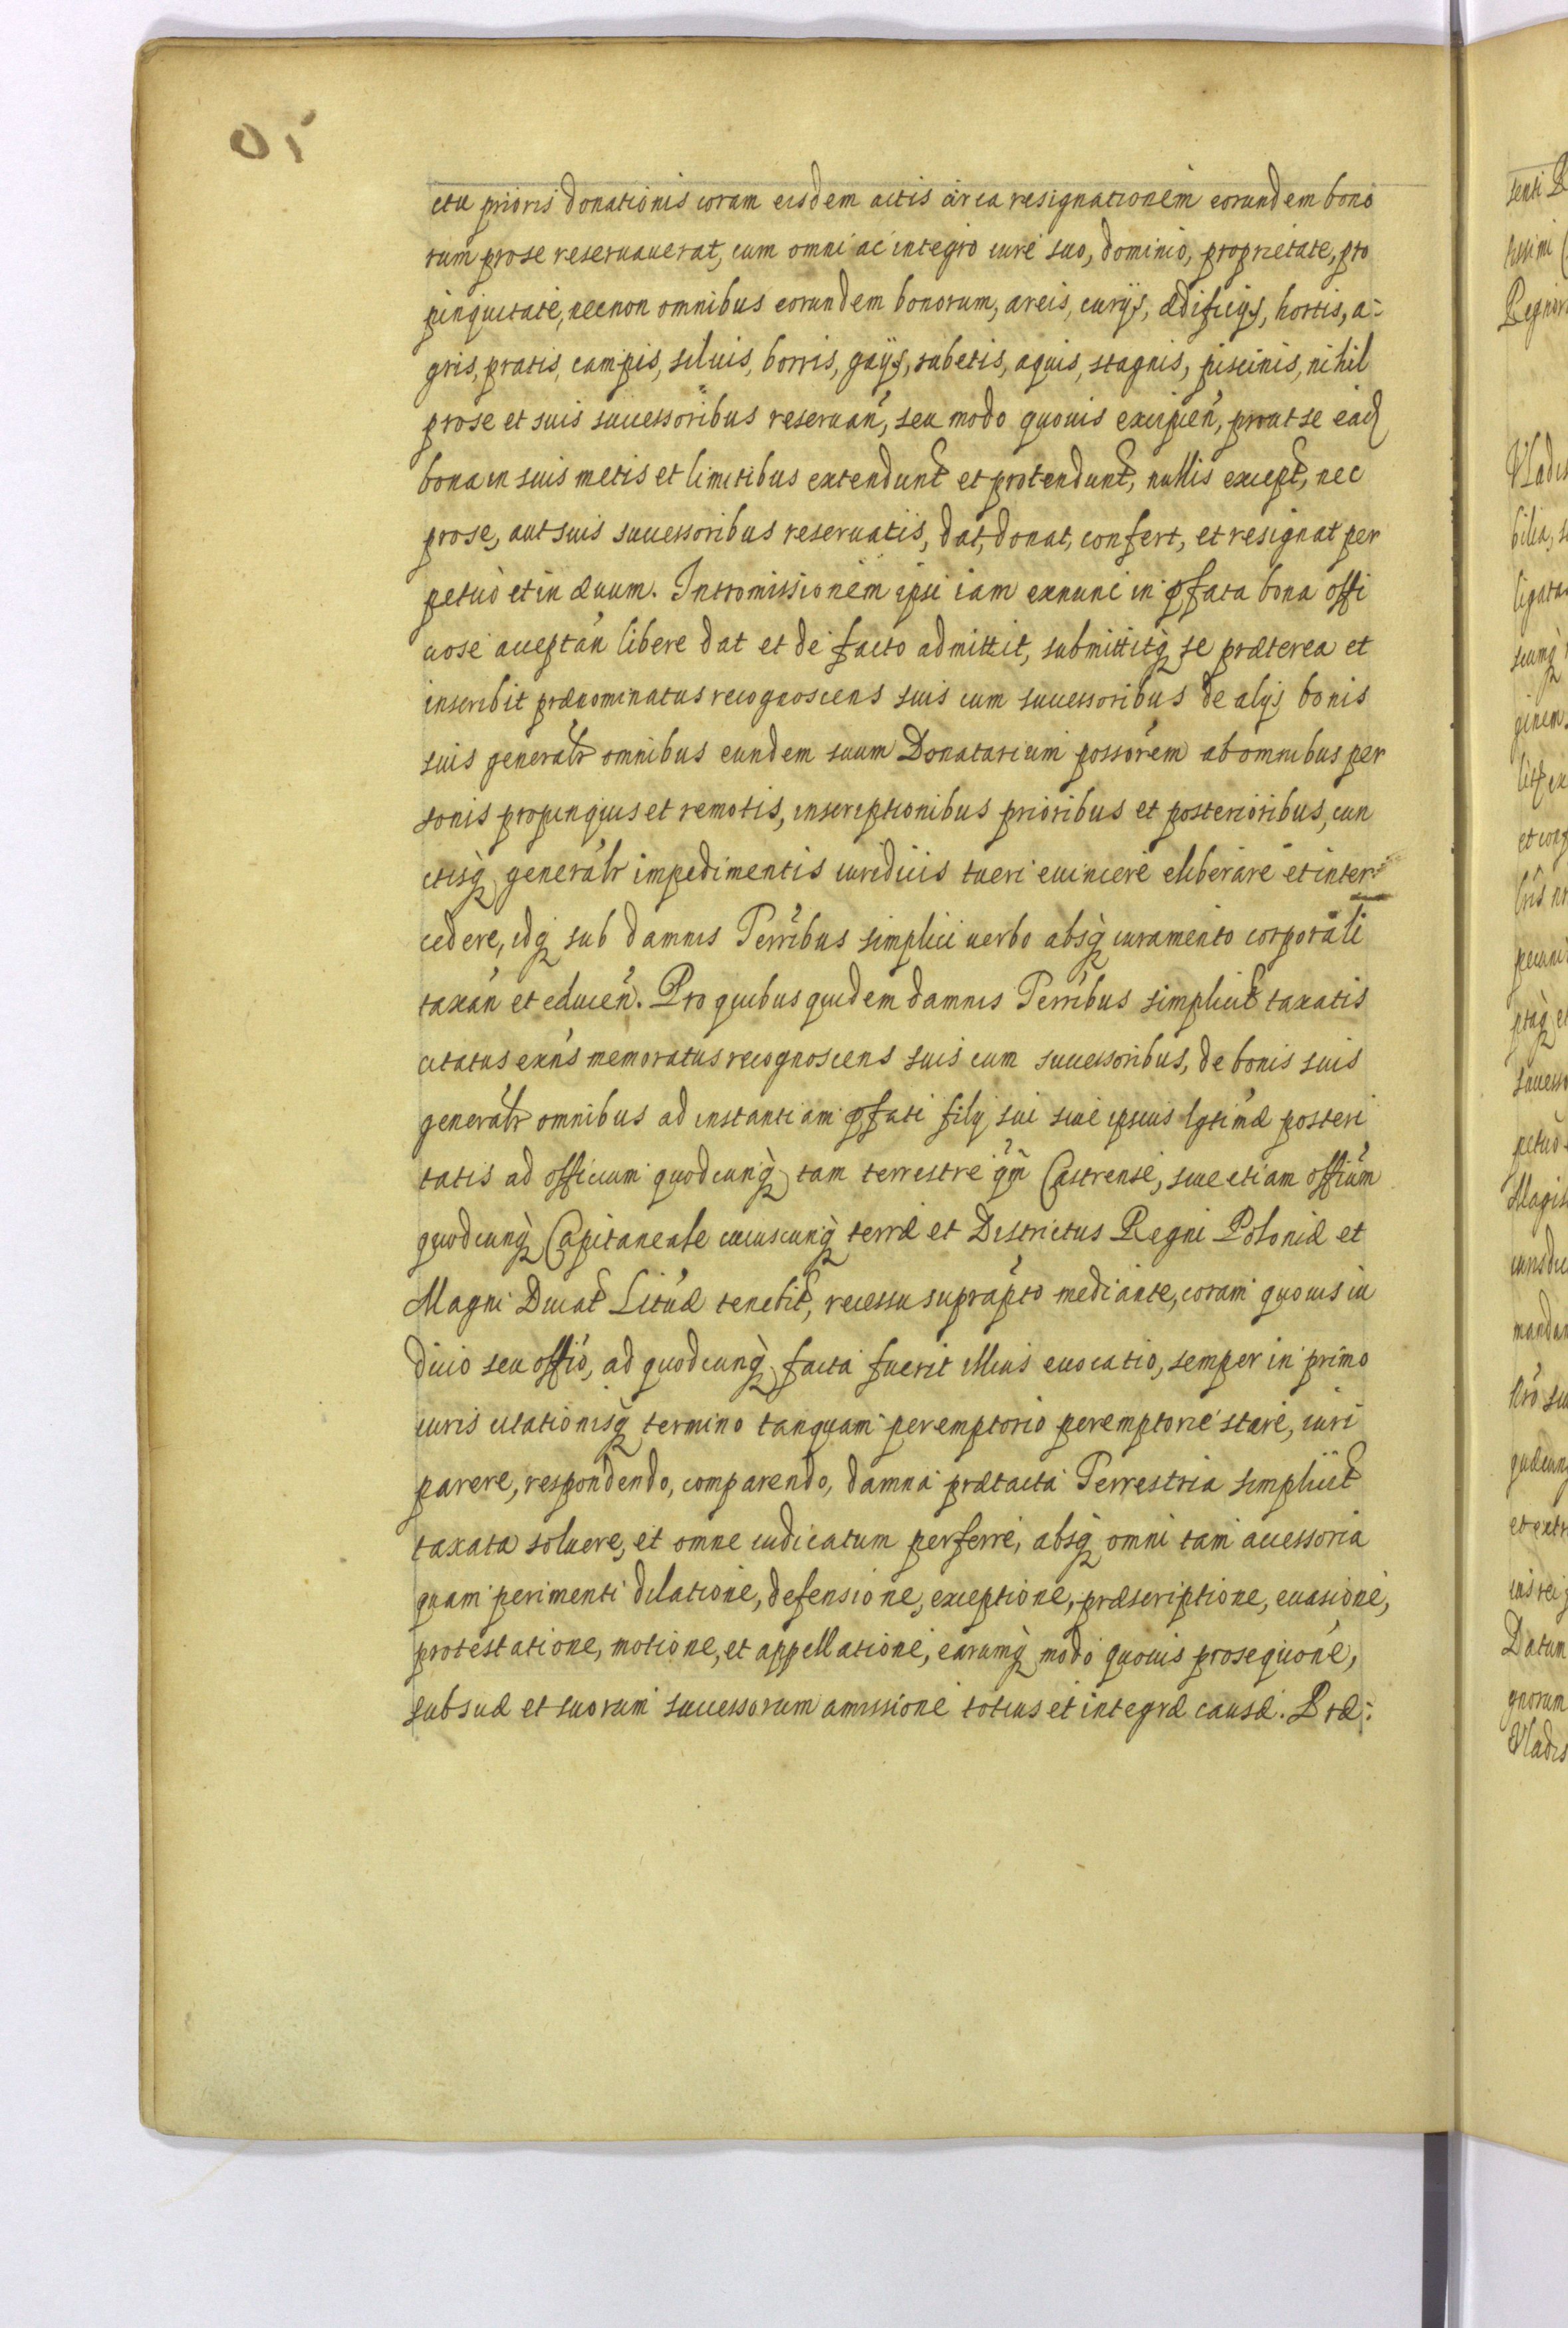 ctu prioris donationis coram eisdem actis circa resignationem eorundem bono
rum pro se reseruauerat, cum omni ac integro iure suo, dominio, proprietate, pro
pinquitate, necnon omnibus eorundem bonorum, areis, curijs, ædificijs, hortis, a-
gris, pratis, campis, siluis, borris, gaijs, rubetis, aquis, stagnis, piscinis, nihil
pro se et suis successoribus reseruañ, seu modo quouis excipieñ, prout se eadē
bona in suis metis et limitibus extendunt et protendunt, nullis except, nec
pro se, aut suis successoribus reseruatis, dat, donat, confert, et resignat per
petuò et in æuum. Intromissionem ipsi iam exnunc in pfata bona offi
ciose acceptañ libere dat et de facto admittit, submittitq se præterea et
inscribit prænominatus recognoscens suis cum successoribus de alijs bonis
suis generalr omnibus eundem suum Donatarium possorem ab omnibus per
sonis propinquis et remotis, inscriptionibus prioribus et posterioribus, cun
ctisq generalr impedimentis iuridicis tueri euincere eliberare et inter
cedere, idq sub damnis Terribus simplici uerbo absq iuramento corporali
taxañ et educeñ. Pro quibus quidem damnis Terribus simplicit taxatis
citatus exñs memoratus recognoscens suis cum successoribus, de bonis suis
generalr omnibus ad instantiam pfati filij sui siue ipsius lgtimæ posteri
tatis ad officium quodcunq tam terrestre qm Castrense, siue etiam offium
quodcunq Capitaneale cuiuscunq terræ et Districtus Regni Poloniæ et
Magni Ducat Lituæ tenebit, recessu suprapto mediante, coram quouis iu
dicio seu offio, ad quodcunq facta fuerit illius euocatio, semper in primo
iuris citationisq termino tanquam peremptorio peremptorie stare, iuri
parere, respondendo, comparendo, damna prætacta Terrestria simplicit
taxata soluere, et omne iudicatum perferre, absq omni tam accessoria
quam perimenti dilatione, defensione, exceptione, præscriptione, euasione,
protestatione, motione, et appellatione, earumq modo quouis prosequone,
sub suæ et suorum successorum amissione totius et integræ causæ. Præ-